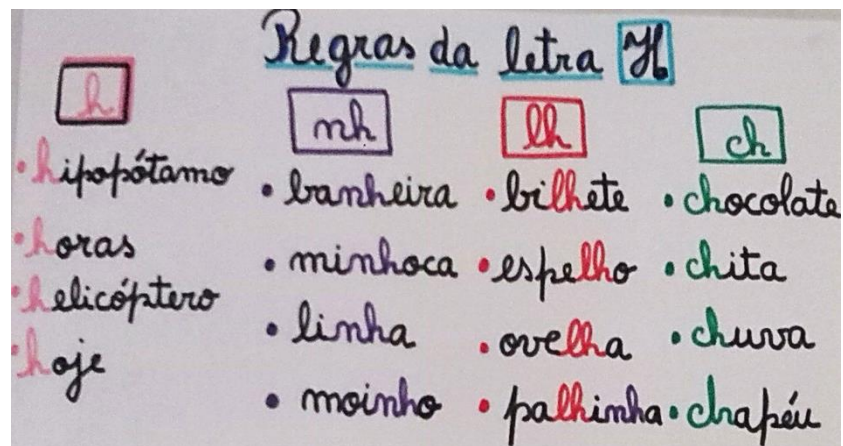 Regras da letra H
h
nh
lh
ch
hipopótamo
horas
helicóptero
hoje
banheira
minhoca
linha
moinho
bilhete
espelho
ovelha
palhinha
chocolate
chita
chuva
chapéu